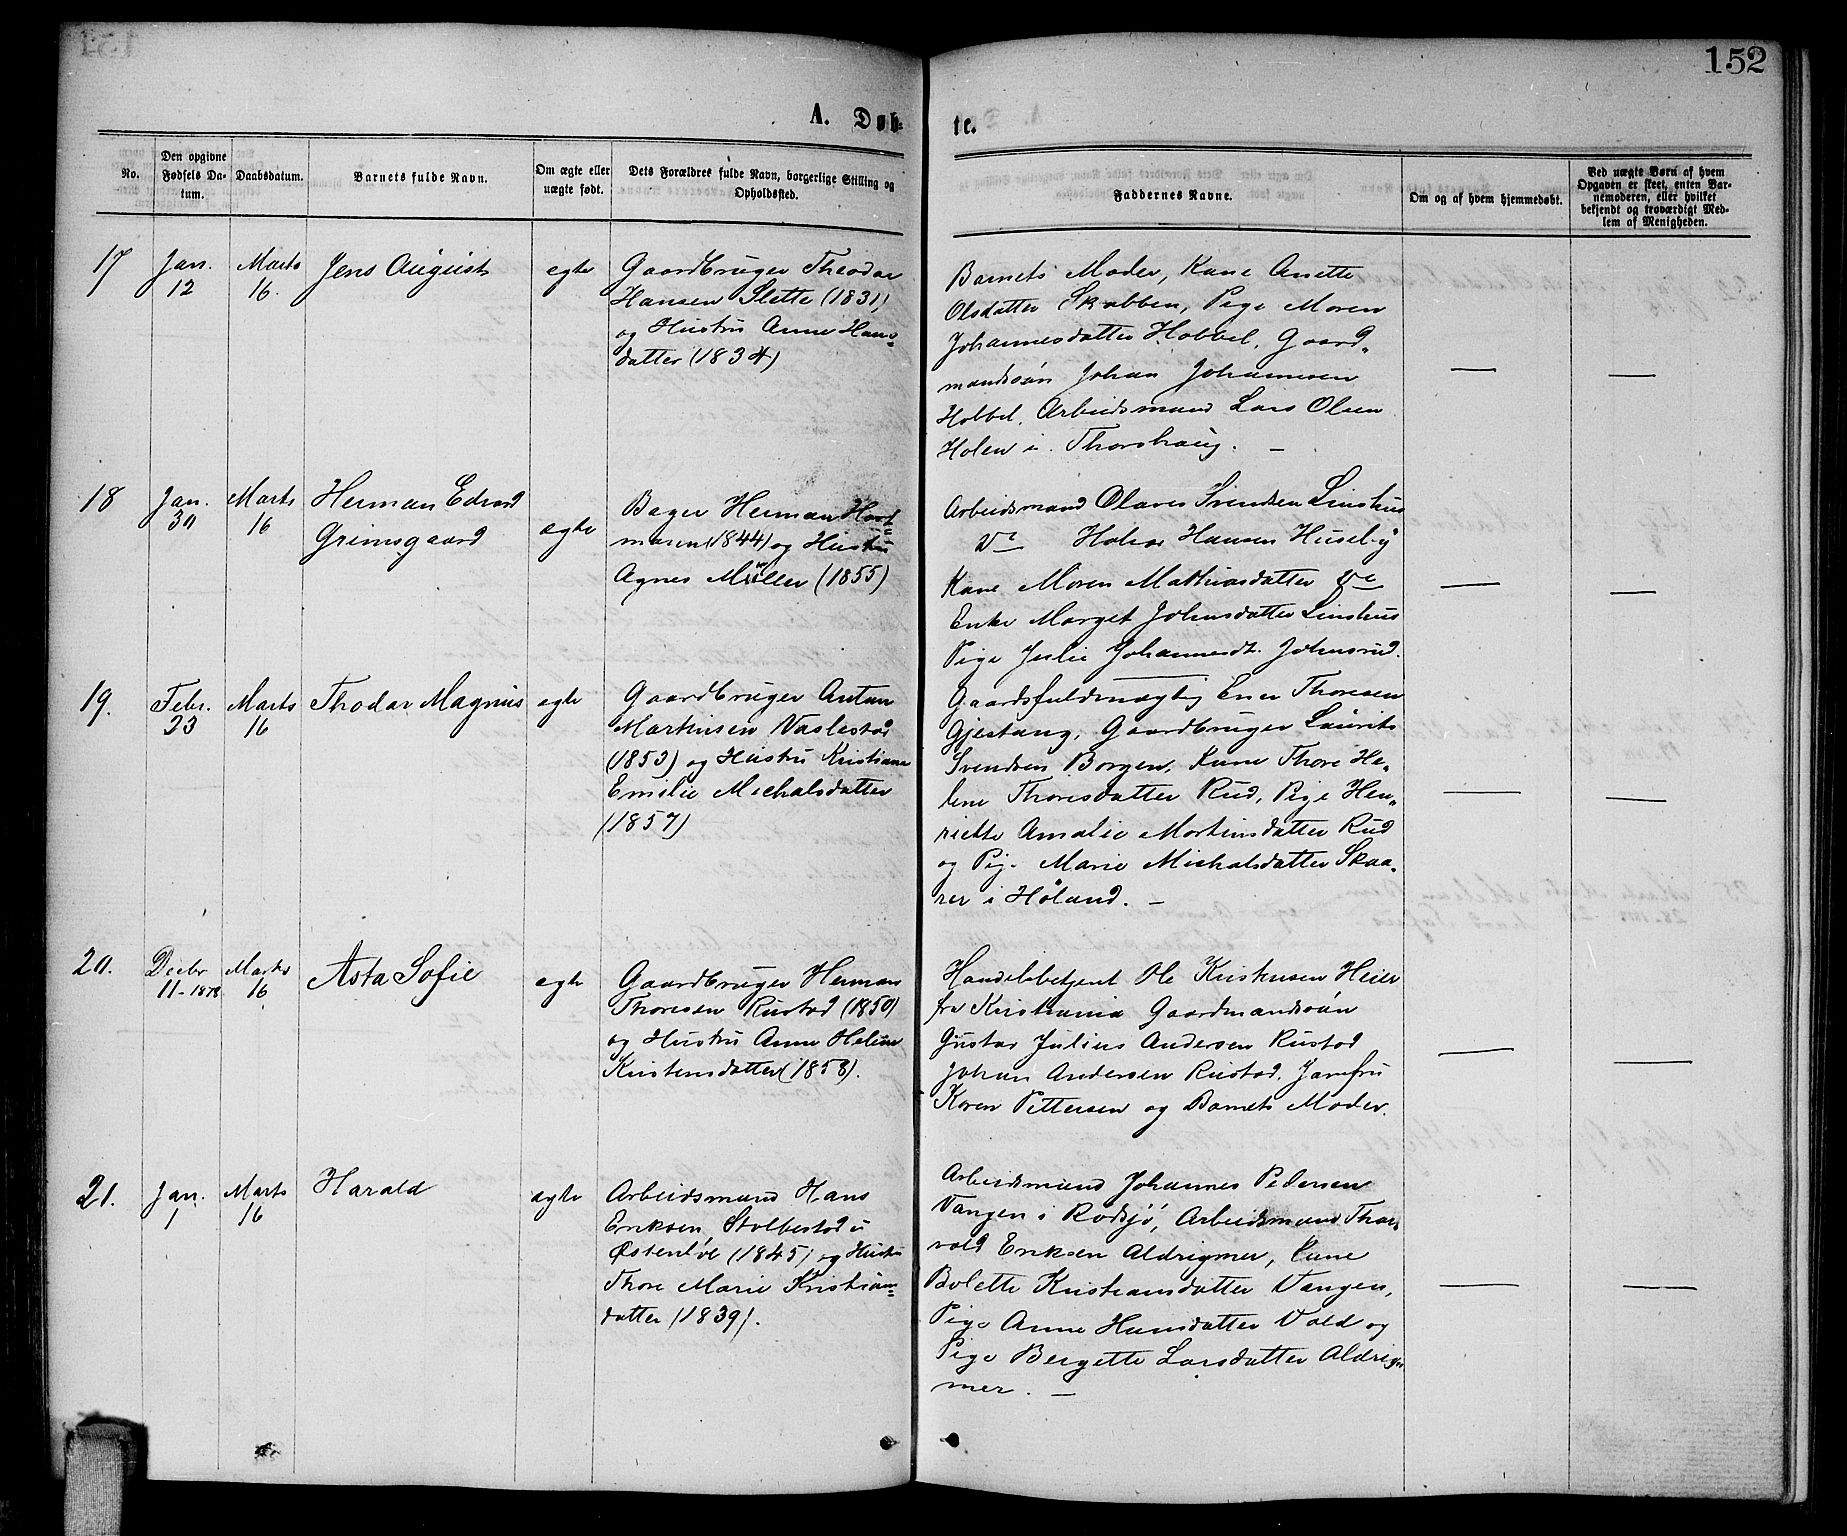 152
A. Døb-
te.
No.
Den opgivne Fødsels Datum.
Daabsdatum.
Barnets fulde Navn.
Om ægte eller uægte født.
Dets Forældres fulde Navn, borgerlige Stilling og Opholdssted.
Faddernes Navne.
Om og af hvem hjemmedøbt.
Ved uægte Børn af hvem Opgaven er skeet, enten Barnemoderen, eller hvilket bekjendt og troværdigt Medlem af Menigheden.
17
Jan. 12
Marts 16.
Jens August
ægte
Gaardbruger Theodor
Hansen Slette (1831)
og Hustru Anne Hans=
datter (1834)
Barnets Moder, Kone Anette
Olsdatter Skabben, Pige Maren
Johannesdatter Hobbel, Gaard„
mandssøn Johan Johannesen
Hobbel, Arbeidsmand Lars Olsen
Holen i Thorshaug. —
18
Jan. 30
Marts 16
Herman Edvard
Grimsgaard
ægte
Bager Herman Hart=
mann (1844) og Hustru
Agnes Müller (1855)
Arbeidsmand Olaves Svendsen Linshus
Do Halvor Hansen Huseby
Kone Maren Mathiasdatter Do
Enke Marget Johnsdatter Linshus
Pige Julie Johannesdt. Johnsrud.
19.
Febr. 23
Marts 16
Thodor Magnus
ægte
Gaardbruger Anton
Martinsen Vaslestad
(1853) og Hustru Kristiane
Emelie Michalsdatter
(1857)
Gaardsfuldmægtig Ener Thoresen
Gjestang, Gaardbruger Laurits
Svendsen Borgen, Kone Thore He„
lene Thoresdatter Rud, Pige Hen„
riette Amalie Martinsdatter Rud
og Pige Marie Michalsdatter Skaa„
rer i Høland. —
20.
Decbr 11-1878
Marts 16
Asta Sofie
ægte
Gaardbruger Herman
Thoresen Rustad (1850)
og Hustru Anne Helene
Kristensdatter (1858).
Handelsbetjent Ole Kristensen Heier
fra Kristiania Gaardmandssøn
Gustav Julius Andersen Rustad
Johan Andersen Rustad, Jomfru
Karen Pettersen og Barnets Moder.
21.
Jan. 1
Marts 16
Harald
ægte
Arbeidsmand Hans
Eriksen Stolbestad u
Østenbøl (1845) og Hustru
Thore Marie Kristian=
datter (1839).
Arbeidsmand Johannes Pedersen
Vangen i Rødsjø, Arbeidsmand Thor„
vald Eriksen Aldrigmer, Kone
Bolette Kristiansdatter Vangen,
Pige Anne Hansdatter Vold og
Pige Bergette Larsdatter Aldrig
mer. —